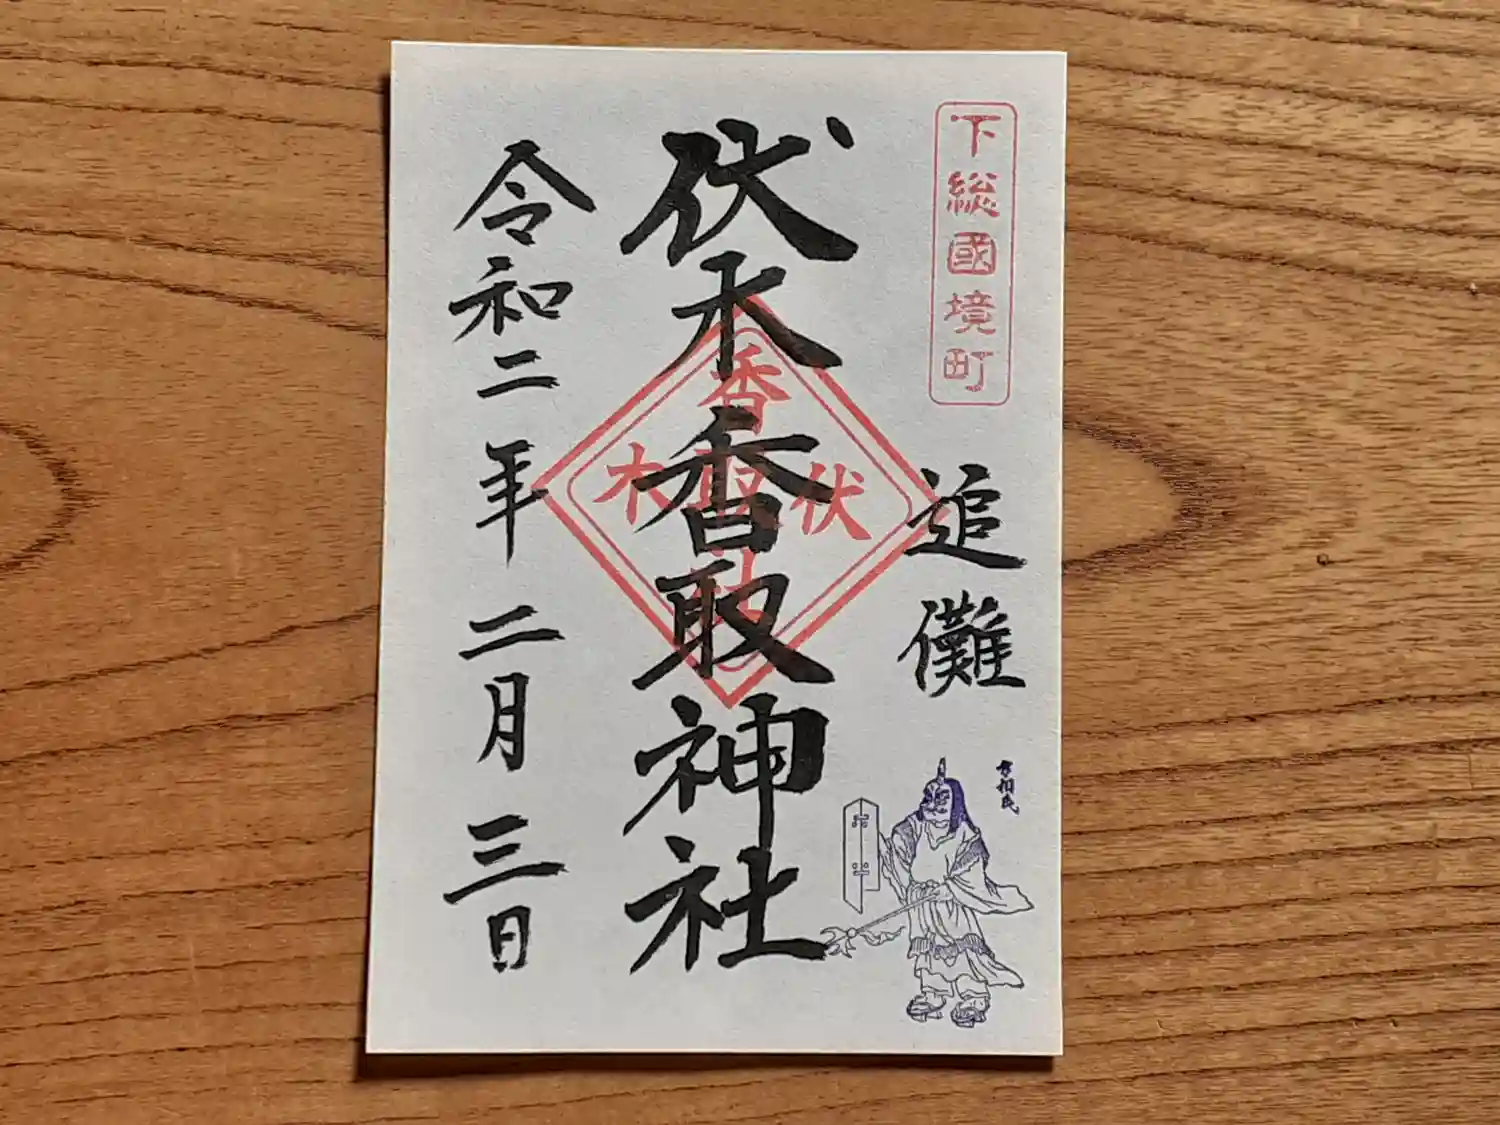 下総國境町
追儺
方相氏
伏木香取神社
香取社
伏木
令和二年二月三日